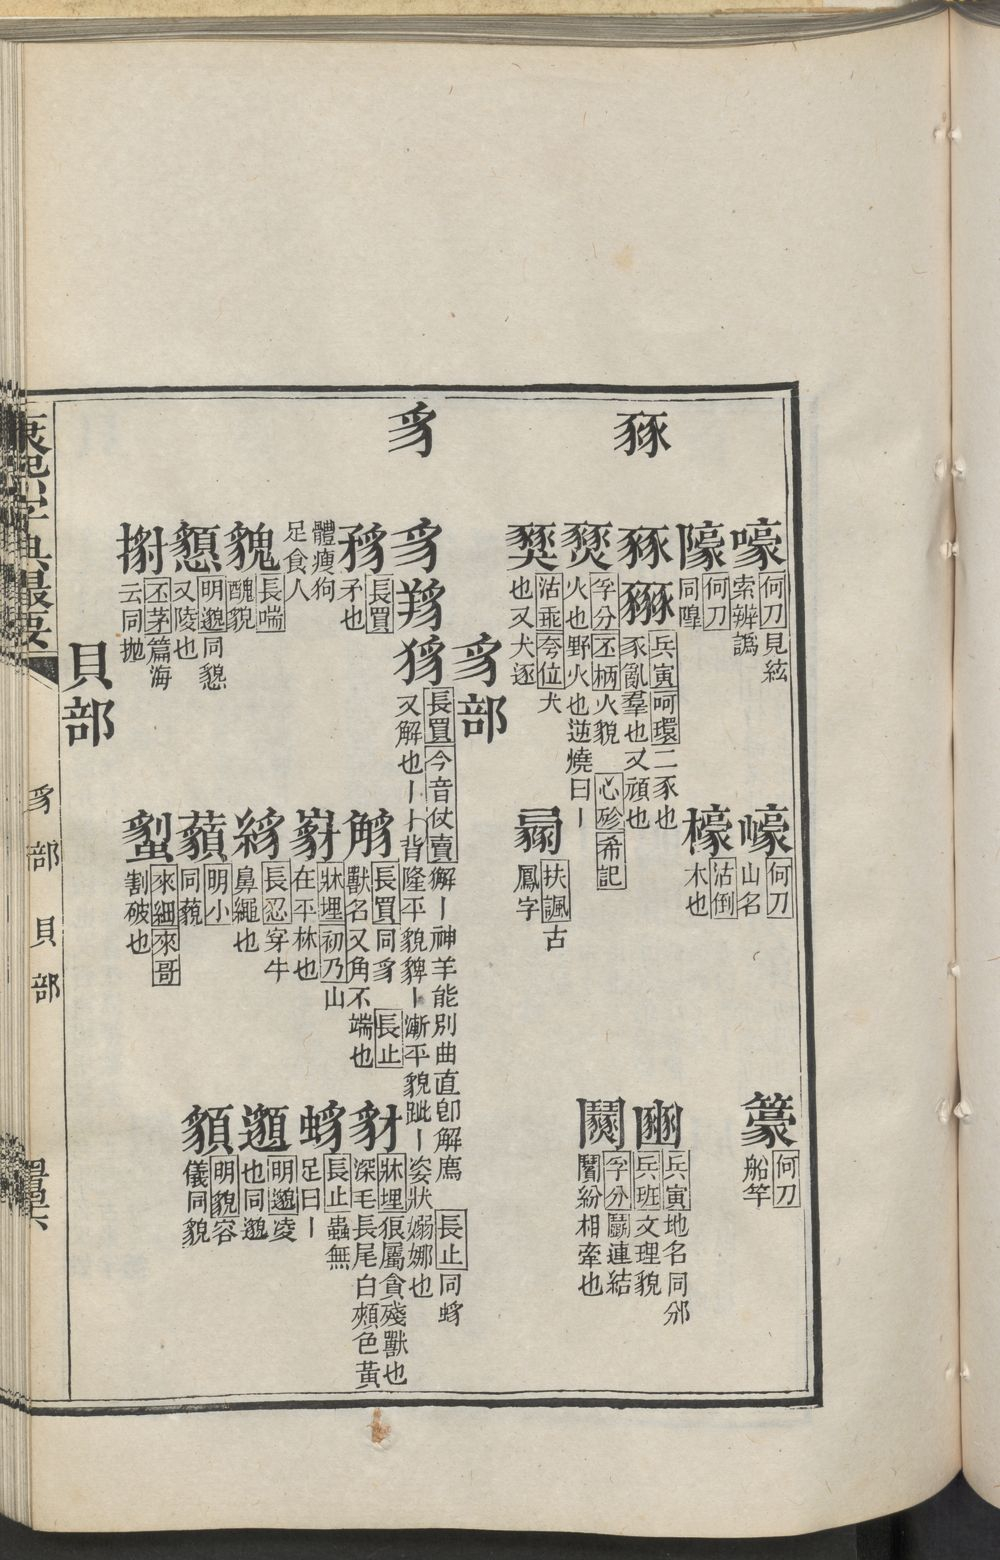 豩
嚎 何刀見絃
索辨譌
嶑 何刀
山名
篆 何刀
船竿
濠 何刀
同隍
檺 沽倒
木也
豩 豳 兵寅呵環二豕也
豕亂羣也又頑也
豳 兵寅地名同邠
兵班文理貌
燹 孚分丕柄火貌 心砂希記
火也野火也逆燒曰丨
闠 孚分鬬連結
鬮紛相牽也
獎 沽乖夸位犬
也又犬逐
扶諷古
鳳字
豸部
豸
豸 長買今音仗賣獬丨神羊能別曲直卽解廌 長止同蛥
又解也丨丨背隆平貌豍丨漸平貌跐丨姿狀嫋娜也
長買
矛也
長買同豸 長止
獸名又角不端也
豺 牀埋狼屬貪殘獸也
深毛長尾白頰色黃
體瘦狗
足食人
牀埋初乃山
在平林也
長止蟲無
足曰丨
貌 長喘
醜貌
長忍穿牛
鼻繩也
邈 明邈凌
也同邈
明邈同懇
又陵也
藐 明小
同藐
明貌容
儀同貌
丕茅篇海
云同抛
來細來哥
割破也
貝部
康熙字典最要
豸部 貝部